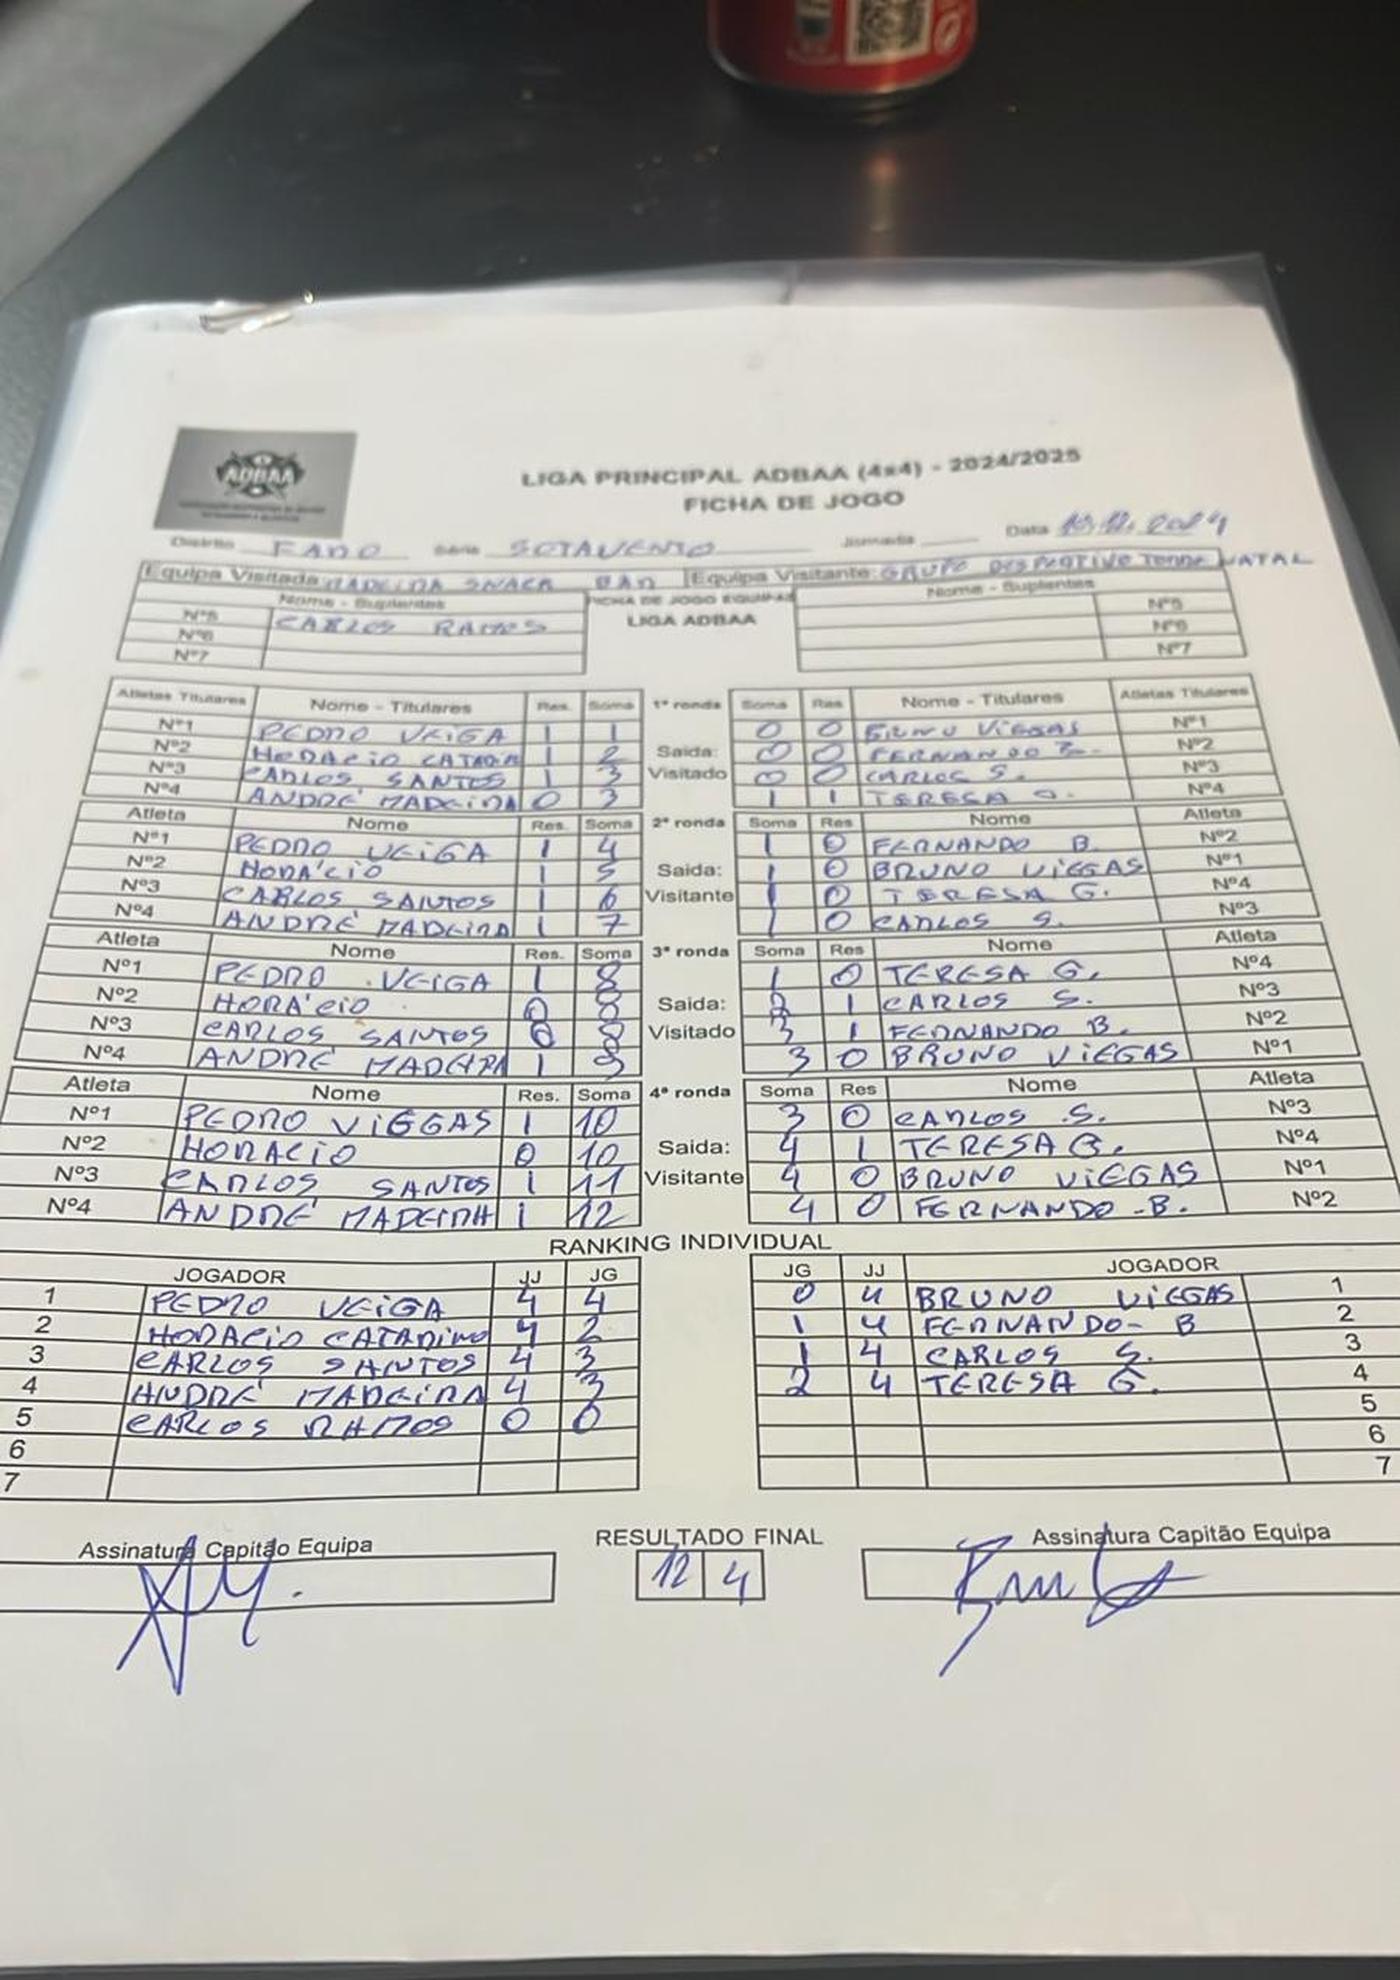 ADBAA
LIGA PRINCIPAL ADBAA (4x4) - 2024/2025
FICHA DE JOGO
Distrito FARO Série SOTAVENTO Jornada Data 2024
Equipa Visitada: MADEIRA SNACK BAR Equipa Visitante: GRUPO DESPORTIVO TORRE NATAL
Nome - Suplentes FICHA DE JOGO EQUIPAS Nome - Suplentes
Nº5 CARLOS RAMOS LIGA ADBAA Nº5
Nº6 Nº6
Nº7 Nº7
Atletas Titulares Nome - Titulares Res. Soma 1ª ronda Soma Res Nome - Titulares Atletas Titulares
Nº1 PEDRO VEIGA 1 1 0 0 BRUNO VIEGAS Nº1
Nº2 HORÁCIO CATARI 1 2 Saida: 0 0 FERNANDO B. Nº2
Nº3 CARLOS SANTOS 1 3 Visitado 0 0 CARLOS S. Nº3
Nº4 ANDRÉ MADEIRA 0 3 1 1 TERESA G. Nº4
Atleta Nome Res. Soma 2ª ronda Soma Res Nome Atleta
Nº1 PEDRO VEIGA 1 4 1 0 FERNANDO B. Nº2
Nº2 HORÁCIO 1 5 Saida: 1 0 BRUNO VIEGAS Nº1
Nº3 CARLOS SANTOS 1 6 Visitante 1 0 TERESA G. Nº4
Nº4 ANDRÉ MADEIRA 1 7 1 0 CARLOS S. Nº3
Atleta Nome Res. Soma 3ª ronda Soma Res Nome Atleta
Nº1 PEDRO VEIGA 1 8 1 0 TERESA G. Nº4
Nº2 HORÁCIO 0 8 Saida: 2 1 CARLOS S. Nº3
Nº3 CARLOS SANTOS 0 8 Visitado 3 1 FERNANDO B. Nº2
Nº4 ANDRÉ MADEIRA 1 9 3 0 BRUNO VIEGAS Nº1
Atleta Nome Res. Soma 4ª ronda Soma Res Nome Atleta
Nº1 PEDRO VIEGAS 1 10 3 0 CARLOS S. Nº3
Nº2 HORACIO 0 10 Saida: 4 1 TERESA G. Nº4
Nº3 CARLOS SANTOS 1 11 Visitante 4 0 BRUNO VIEGAS Nº1
Nº4 ANDRÉ MADEIRA 1 12 4 0 FERNANDO - B. Nº2
RANKING INDIVIDUAL
JOGADOR JJ JG JG JJ JOGADOR
1 PEDRO VEIGA 4 4 0 4 BRUNO VIEGAS 1
2 HORACIO CATARINO 4 2 1 4 FERNANDO - B 2
3 CARLOS SANTOS 4 3 1 4 CARLOS S. 3
4 ANDRÉ MADEIRA 4 3 2 4 TERESA G. 4
5 CARLOS RAMOS 0 0 5
6 6
7 7
Assinatura Capitão Equipa RESULTADO FINAL Assinatura Capitão Equipa
12 4